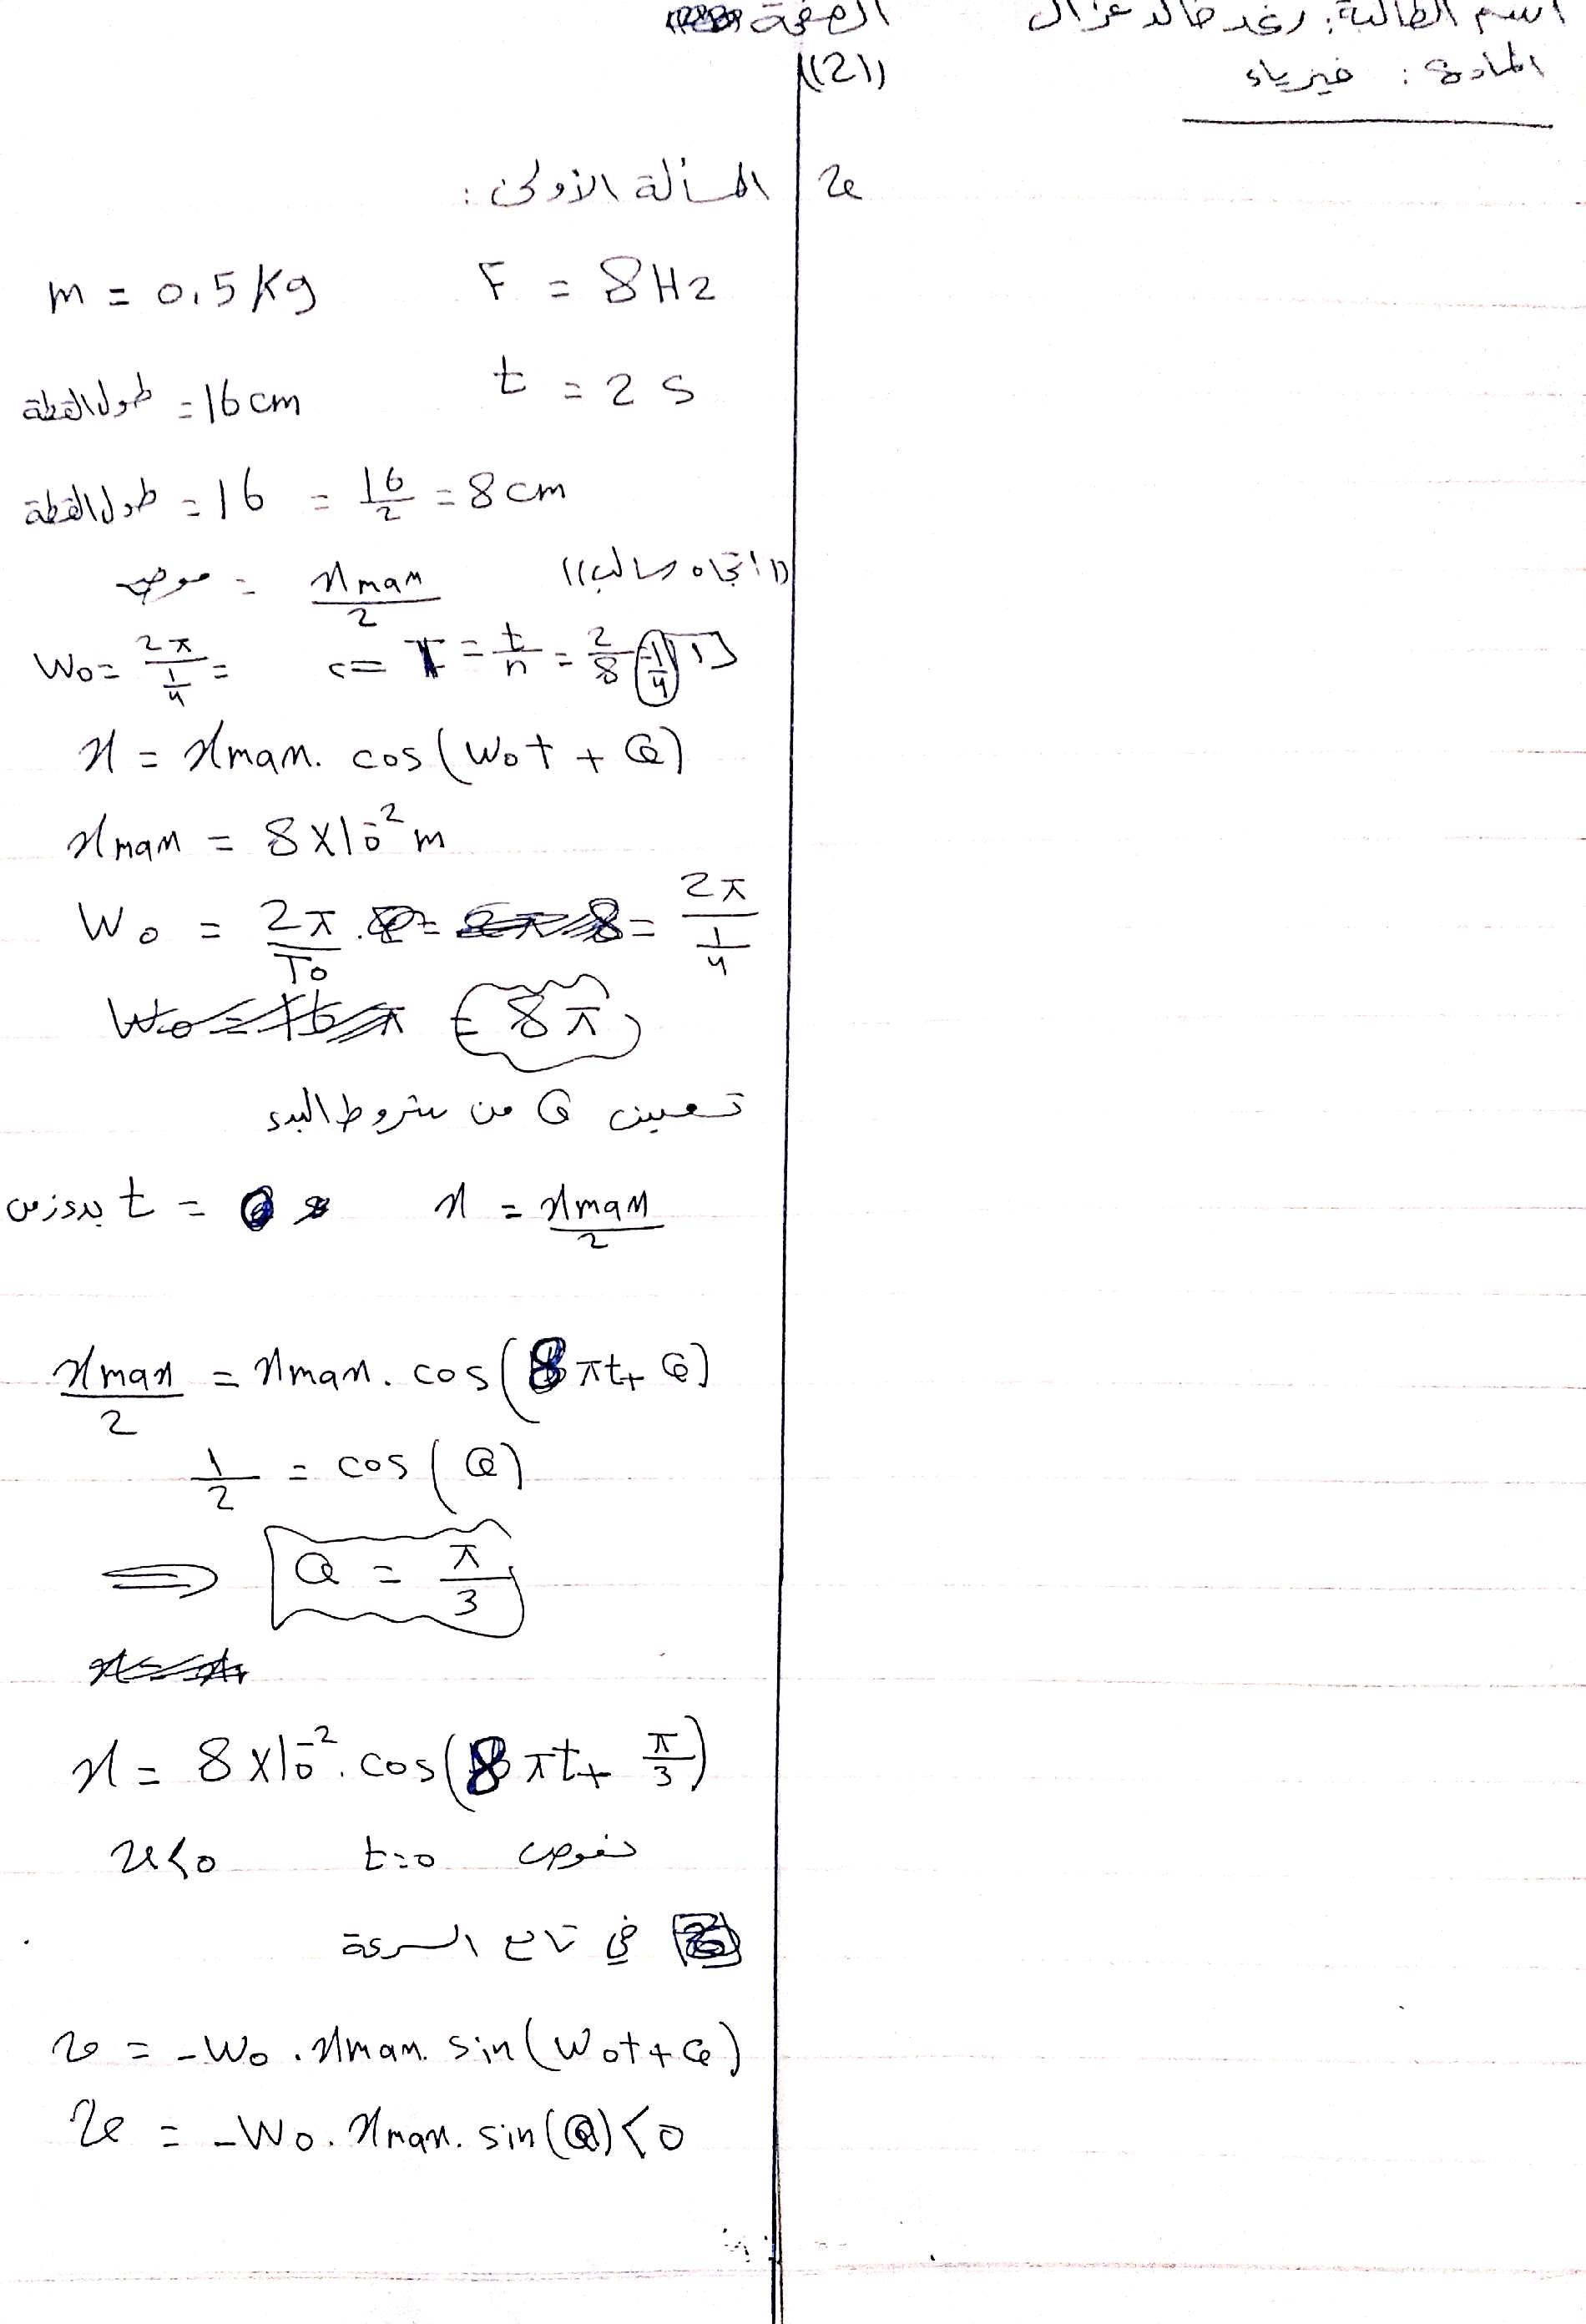 اسم الطالبة: رغد خالد غزال
المادة: فيزياء
الصفحة
((2))
المسألة الأولى:
m = 0,5 Kg F = 8 Hz
طول القطعة = 16 cm t = 2 s
طول القطعة = 16 = 16/2 = 8 cm
موجب = xmax/2 ((اتجاه سالب))
W0 = 2π/(1/4) = <= T = t/n = 2/8 = 1/4
x = xmax. cos(W0t + φ)
xmax = 8x10^-2 m
W0 = 2π/T0 = 2π/(1/4)
= 8π
تعيين φ من شروط البدء
t = 0 x = xmax/2
xmax/2 = xmax. cos(8πt + φ)
1/2 = cos(φ)
⇒ φ = π/3
x = 8x10^-2. cos(8πt + π/3)
نعوض t=0 v<0
في تابع السرعة
v = -W0. xmax. sin(W0t + φ)
v = -W0. xmax. sin(φ) < 0